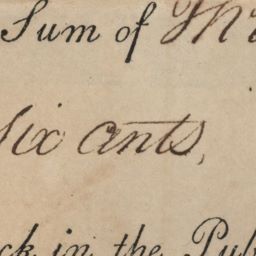 Sum of Th
Six Cents,
ck in the Pub